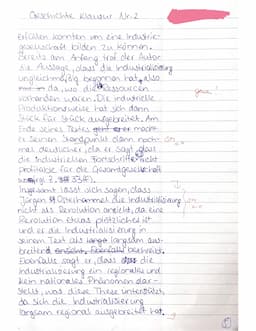 Geschichte Klausur Nr.2
erfüllen konnten um eine Industrie-
gesellschaft bilden zu können.
Bereits am Anfang traf der Autor
die Aussage, dass die Industrialisierung
ungleichmäßig begonnen hat, also
da, wo die Ressourcen
vorhanden waren. Die industrielle
Produktionsweise hat sich dann
Stück für Stück ausgebreitet. Am
Ende seines Textes macht
er seinen Standpunkt dann noch
mal deutlicher, da er sagt, dass
die industriellen Fortschritte nicht
profitable für die Gesamtgesellschaft
(Z. 33ff).
Insgesamt lässt sich sagen, dass
Jürgen Osterhammel die Industrialisierung
nicht als Revolution ansieht, da eine
Revolution etwas plötzliches ist
und er die Industrialisierung in
seinem Text als langsam aus-
breitend beschreibt.
Ebenfalls sagt er, dass die
Industrialisierung ein regionales und
kein nationales Phänomen dar-
stellt, was diese These unterstützt,
da sich die Industrialisierung
langsam regional ausgebreitet hat.